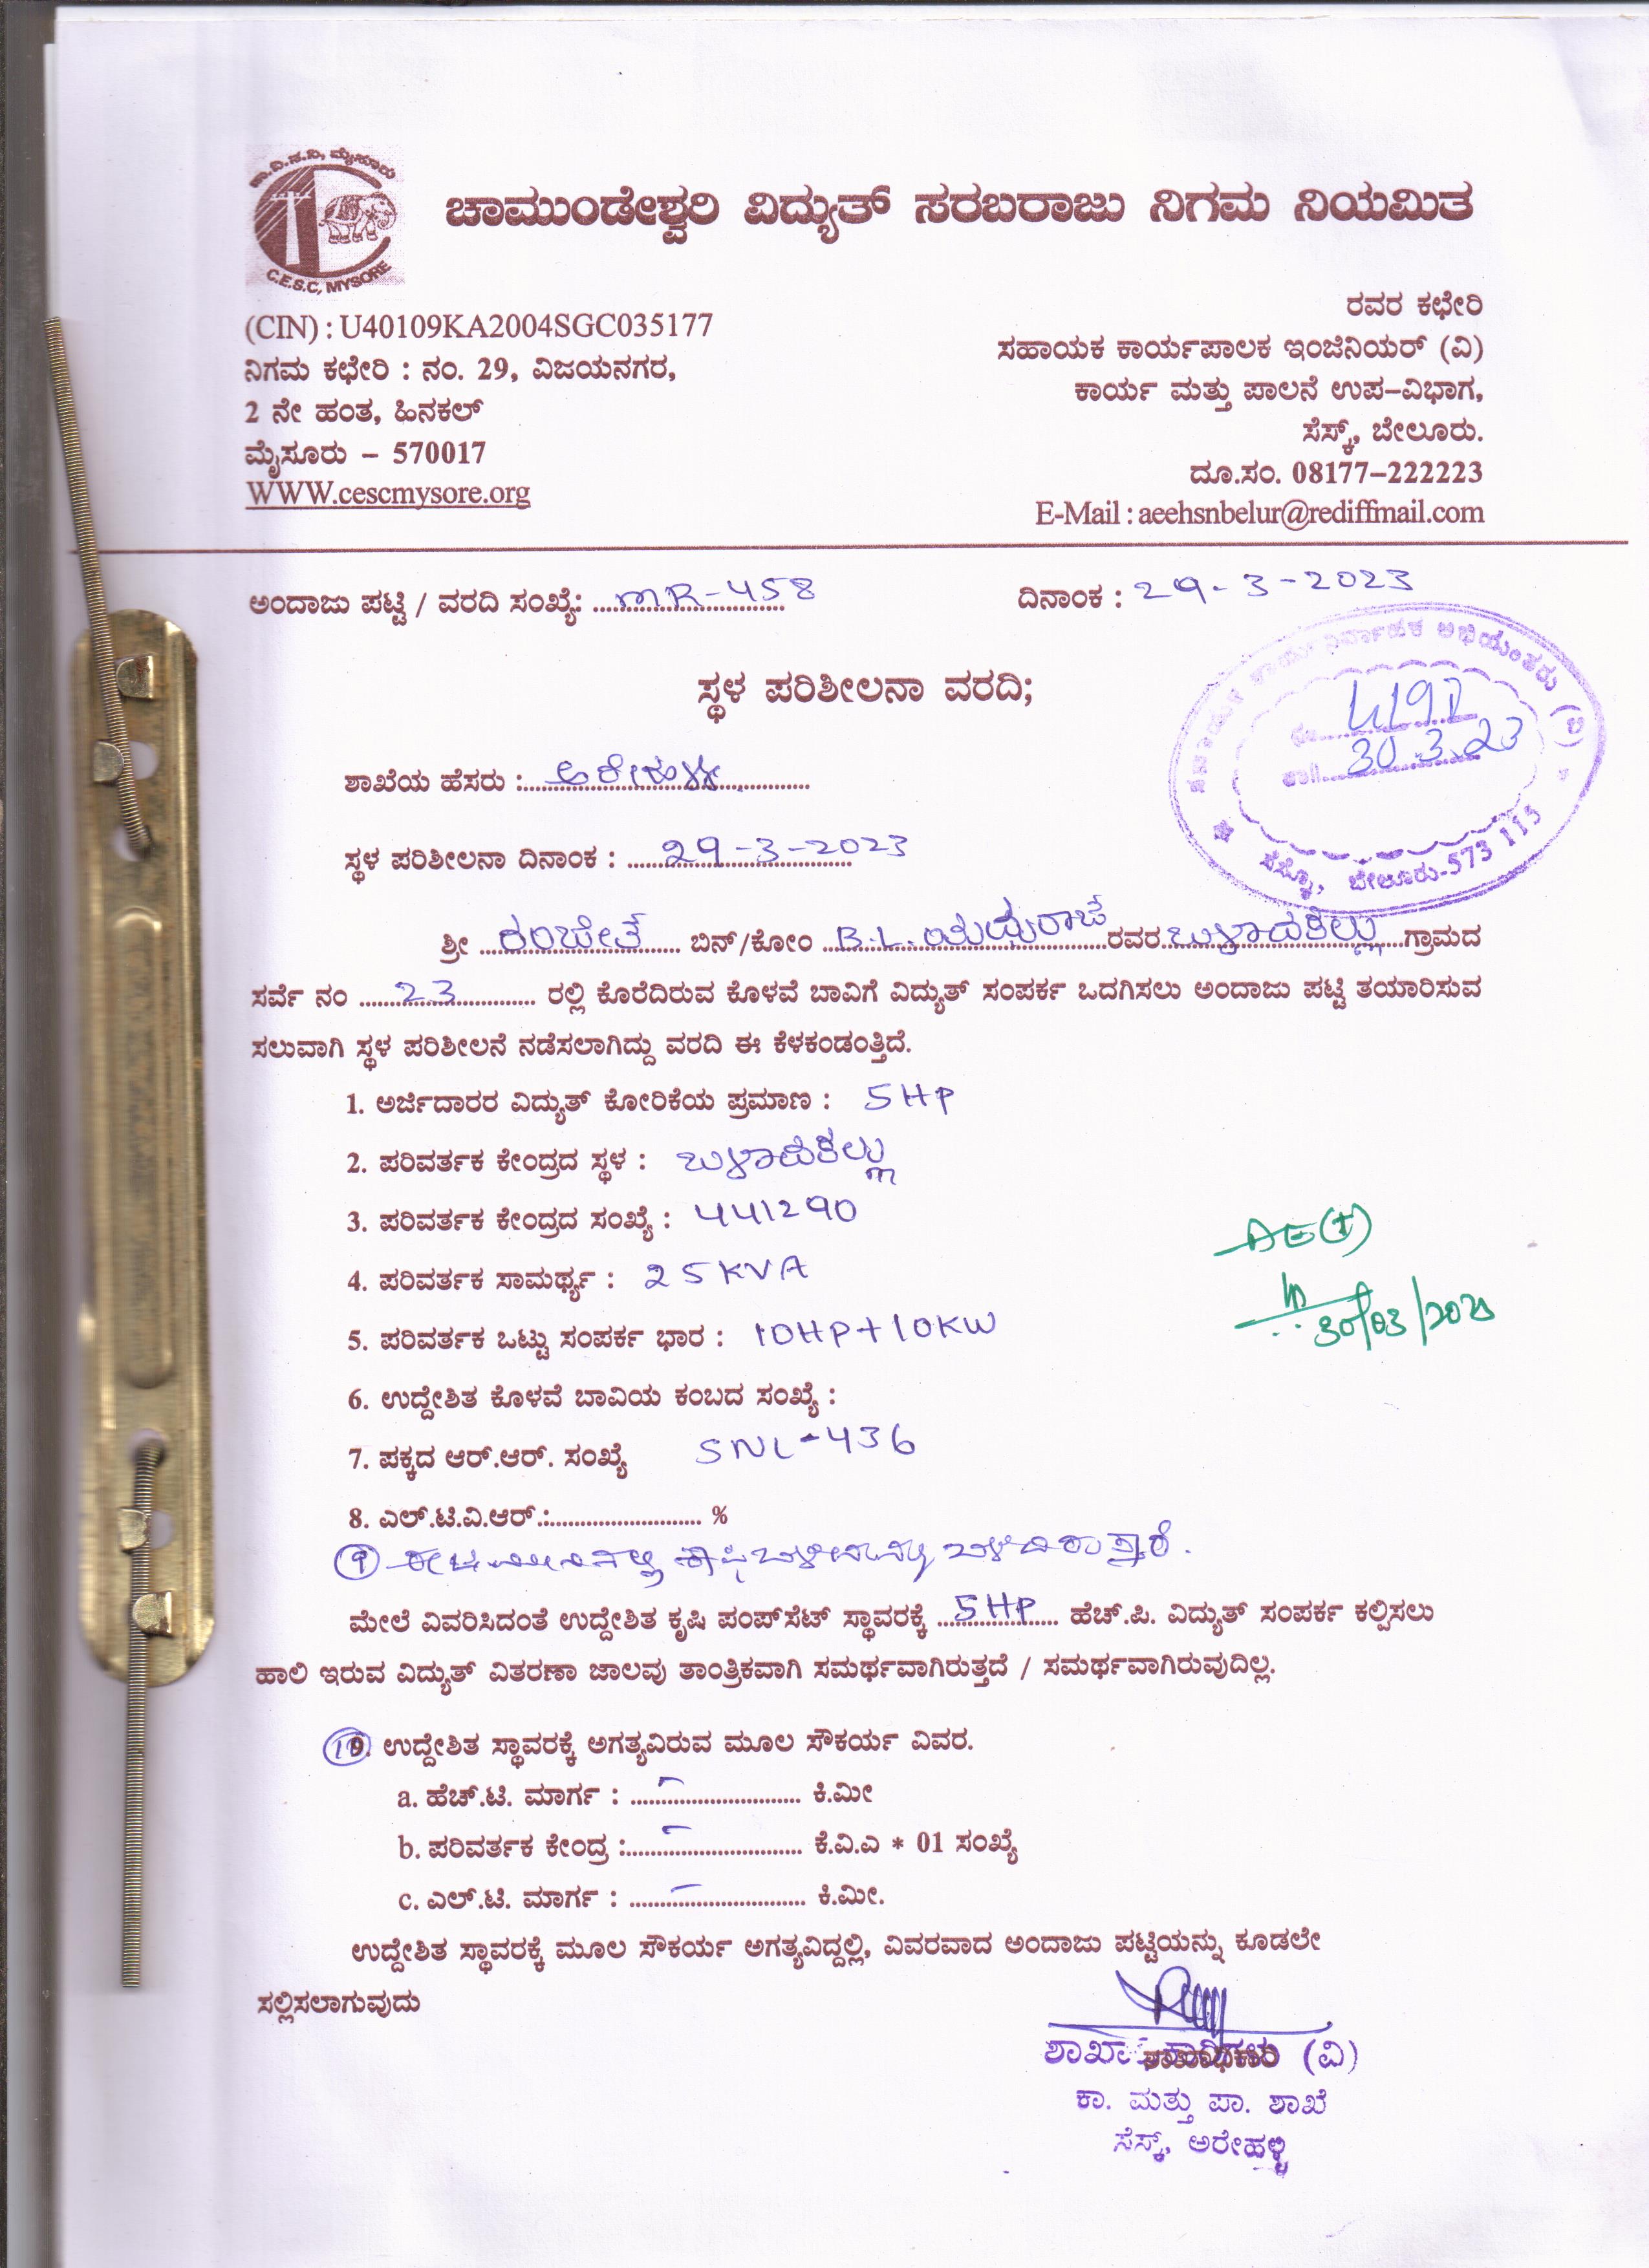 ಚಾ.ವಿ.ಸ.ನಿ, ಮೈಸೂರು
C.E.S.C, MYSORE
ಚಾಮುಂಡೇಶ್ವರಿ ವಿದ್ಯುತ್ ಸರಬರಾಜು ನಿಗಮ ನಿಯಮಿತ
(CIN) : U40109KA2004SGC035177
ನಿಗಮ ಕಛೇರಿ : ನಂ. 29, ವಿಜಯನಗರ,
2 ನೇ ಹಂತ, ಹಿನಕಲ್
ಮೈಸೂರು – 570017
WWW.cescmysore.org
ರವರ ಕಛೇರಿ
ಸಹಾಯಕ ಕಾರ್ಯಪಾಲಕ ಇಂಜಿನಿಯರ್ (ವಿ)
ಕಾರ್ಯ ಮತ್ತು ಪಾಲನೆ ಉಪ-ವಿಭಾಗ,
ಸೆಸ್ಕ್, ಬೇಲೂರು.
ದೂ.ಸಂ. 08177-222223
E-Mail : aeehsnbelur@rediffmail.com
ಅಂದಾಜು ಪಟ್ಟಿ / ವರದಿ ಸಂಖ್ಯೆ: MR-458 ದಿನಾಂಕ : 29-3-2023
ಸ್ಥಳ ಪರಿಶೀಲನಾ ವರದಿ;
ಸಹಾಯಕ ಕಾರ್ಯನಿರ್ವಾಹಕ ಅಭಿಯಂತರು (ವಿ)
30.3.23
ಸೆಸ್ಕ್, ಬೇಲೂರು-573 115
ಶಾಖೆಯ ಹೆಸರು : ಅರೇಹಳ್ಳಿ
ಸ್ಥಳ ಪರಿಶೀಲನಾ ದಿನಾಂಕ : 29-3-2023
ಶ್ರೀ ಬಿನ್/ಕೋಂ B.L. ರವರ ಗ್ರಾಮದ
ಸರ್ವೆ ನಂ 23 ರಲ್ಲಿ ಕೊರೆದಿರುವ ಕೊಳವೆ ಬಾವಿಗೆ ವಿದ್ಯುತ್ ಸಂಪರ್ಕ ಒದಗಿಸಲು ಅಂದಾಜು ಪಟ್ಟಿ ತಯಾರಿಸುವ
ಸಲುವಾಗಿ ಸ್ಥಳ ಪರಿಶೀಲನೆ ನಡೆಸಲಾಗಿದ್ದು ವರದಿ ಈ ಕೆಳಕಂಡಂತ್ತಿದೆ.
1. ಅರ್ಜಿದಾರರ ವಿದ್ಯುತ್ ಕೋರಿಕೆಯ ಪ್ರಮಾಣ : 5HP
2. ಪರಿವರ್ತಕ ಕೇಂದ್ರದ ಸ್ಥಳ :
3. ಪರಿವರ್ತಕ ಕೇಂದ್ರದ ಸಂಖ್ಯೆ : 441290
4. ಪರಿವರ್ತಕ ಸಾಮರ್ಥ್ಯ : 25KVA
5. ಪರಿವರ್ತಕ ಒಟ್ಟು ಸಂಪರ್ಕ ಭಾರ : 10HP+10KW
AE(T)
6. ಉದ್ದೇಶಿತ ಕೊಳವೆ ಬಾವಿಯ ಕಂಬದ ಸಂಖ್ಯೆ :
7. ಪಕ್ಕದ ಆರ್.ಆರ್. ಸಂಖ್ಯೆ SNL-436
8. ಎಲ್.ಟಿ.ವಿ.ಆರ್.: %
9
ಮೇಲೆ ವಿವರಿಸಿದಂತೆ ಉದ್ದೇಶಿತ ಕೃಷಿ ಪಂಪ್‌ಸೆಟ್ ಸ್ಥಾವರಕ್ಕೆ 5HP ಹೆಚ್.ಪಿ. ವಿದ್ಯುತ್ ಸಂಪರ್ಕ ಕಲ್ಪಿಸಲು
ಹಾಲಿ ಇರುವ ವಿದ್ಯುತ್ ವಿತರಣಾ ಜಾಲವು ತಾಂತ್ರಿಕವಾಗಿ ಸಮರ್ಥವಾಗಿರುತ್ತದೆ / ಸಮರ್ಥವಾಗಿರುವುದಿಲ್ಲ.
10. ಉದ್ದೇಶಿತ ಸ್ಥಾವರಕ್ಕೆ ಅಗತ್ಯವಿರುವ ಮೂಲ ಸೌಕರ್ಯ ವಿವರ.
a. ಹೆಚ್.ಟಿ. ಮಾರ್ಗ : - ಕಿ.ಮೀ
b. ಪರಿವರ್ತಕ ಕೇಂದ್ರ : - ಕೆ.ವಿ.ಎ * 01 ಸಂಖ್ಯೆ
c. ಎಲ್.ಟಿ. ಮಾರ್ಗ : - ಕಿ.ಮೀ.
ಉದ್ದೇಶಿತ ಸ್ಥಾವರಕ್ಕೆ ಮೂಲ ಸೌಕರ್ಯ ಅಗತ್ಯವಿದ್ದಲ್ಲಿ, ವಿವರವಾದ ಅಂದಾಜು ಪಟ್ಟಿಯನ್ನು ಕೂಡಲೇ
ಸಲ್ಲಿಸಲಾಗುವುದು
ಶಾಖಾಧಿಕಾರಿಗಳು (ವಿ)
ಕಾ. ಮತ್ತು ಪಾ. ಶಾಖೆ
ಸೆಸ್ಕ್, ಅರೇಹಳ್ಳಿ